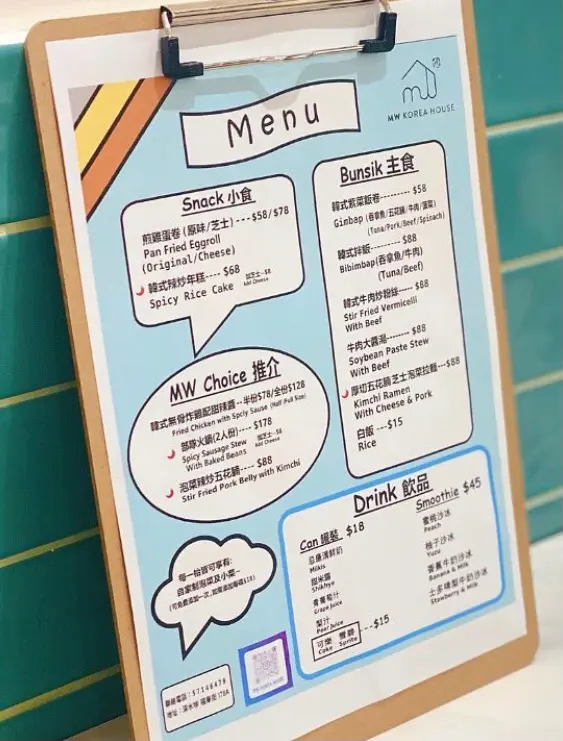 MW KOREA HOUSE
Menu
Snack 小食
煎雞蛋卷 (原味/芝士) ---$58/$78
Pan Fried Eggroll
(Original/Cheese)
韓式辣炒年糕---- $68 加芝士--$8
Spicy Rice Cake Add Cheese
MW Choice 推介
韓式無骨炸雞配甜辣醬--半份$78/全份$128
Fried Chicken with Spciy Sause (Half /Full Size)
部隊火鍋(2人份)---- $178
Spicy Sausage Stew 加芝士--$8
With Baked Beans Add Cheese
泡菜辣炒五花腩---- $88
Stir Fried Pork Belly with Kimchi
每一枱皆可享有:
自家制泡菜及小菜~
聯絡電話: 57148478
Bunsik 主食
韓式紫菜飯卷--------- $58
Ginbap (吞拿魚/五花腩/牛肉/菠菜)
(Tuna/Pork/Beef/Spinach)
韓式拌飯-------- $88
Bibimbap(吞拿魚/牛肉)
(Tuna/Beef)
韓式牛肉炒粉絲----- $88
Stir Fried Vermicelli
With Beef
牛肉大醬湯-------- $88
Soybean Paste Stew
With Beef
厚切五花腩芝士泡菜拉麵--$88
Kimchi Ramen
With Cheese & Pork
白飯 ---$15
Rice
Drink 飲品
Can 罐裝 $18
Milkis
甜米露
Shikhye
青葡萄汁
Grape Juice
梨汁
Pear Juice
可樂 雪碧 ---$15
Coke Sprite
Smoothie $45
蜜桃沙冰
Peach
柚子沙冰
Yuzu
香蕉牛奶沙冰
Banana & Milk
士多啤梨牛奶沙冰
Stawberry & Milk
MW KOREA HOUSE